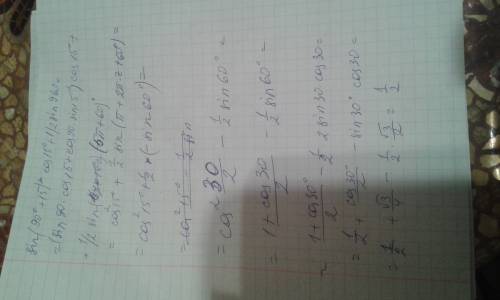 sin(90°+15°)· cos15°+1/2 sin960=
=(sin90·cos15+cos90 sin15) cos15+
+ 1/2 sin (5π+60)°
= cos²15°+ 1/2 sin(π+2π·2+60°)=
= cos²15°+1/2 ×(-sin60°)=
= cos² 30/2 - 1/2 sin60° =
= (1+cos30)/2 - 1/2 sin60° =
= (1+cos30°)/2 - 1/2 2sin30 cos30=
= 1/2 + cos30°/2 - sin30° cos30=
= 1/2 + √3/4 - 1/2 · √3/2 = 1/2